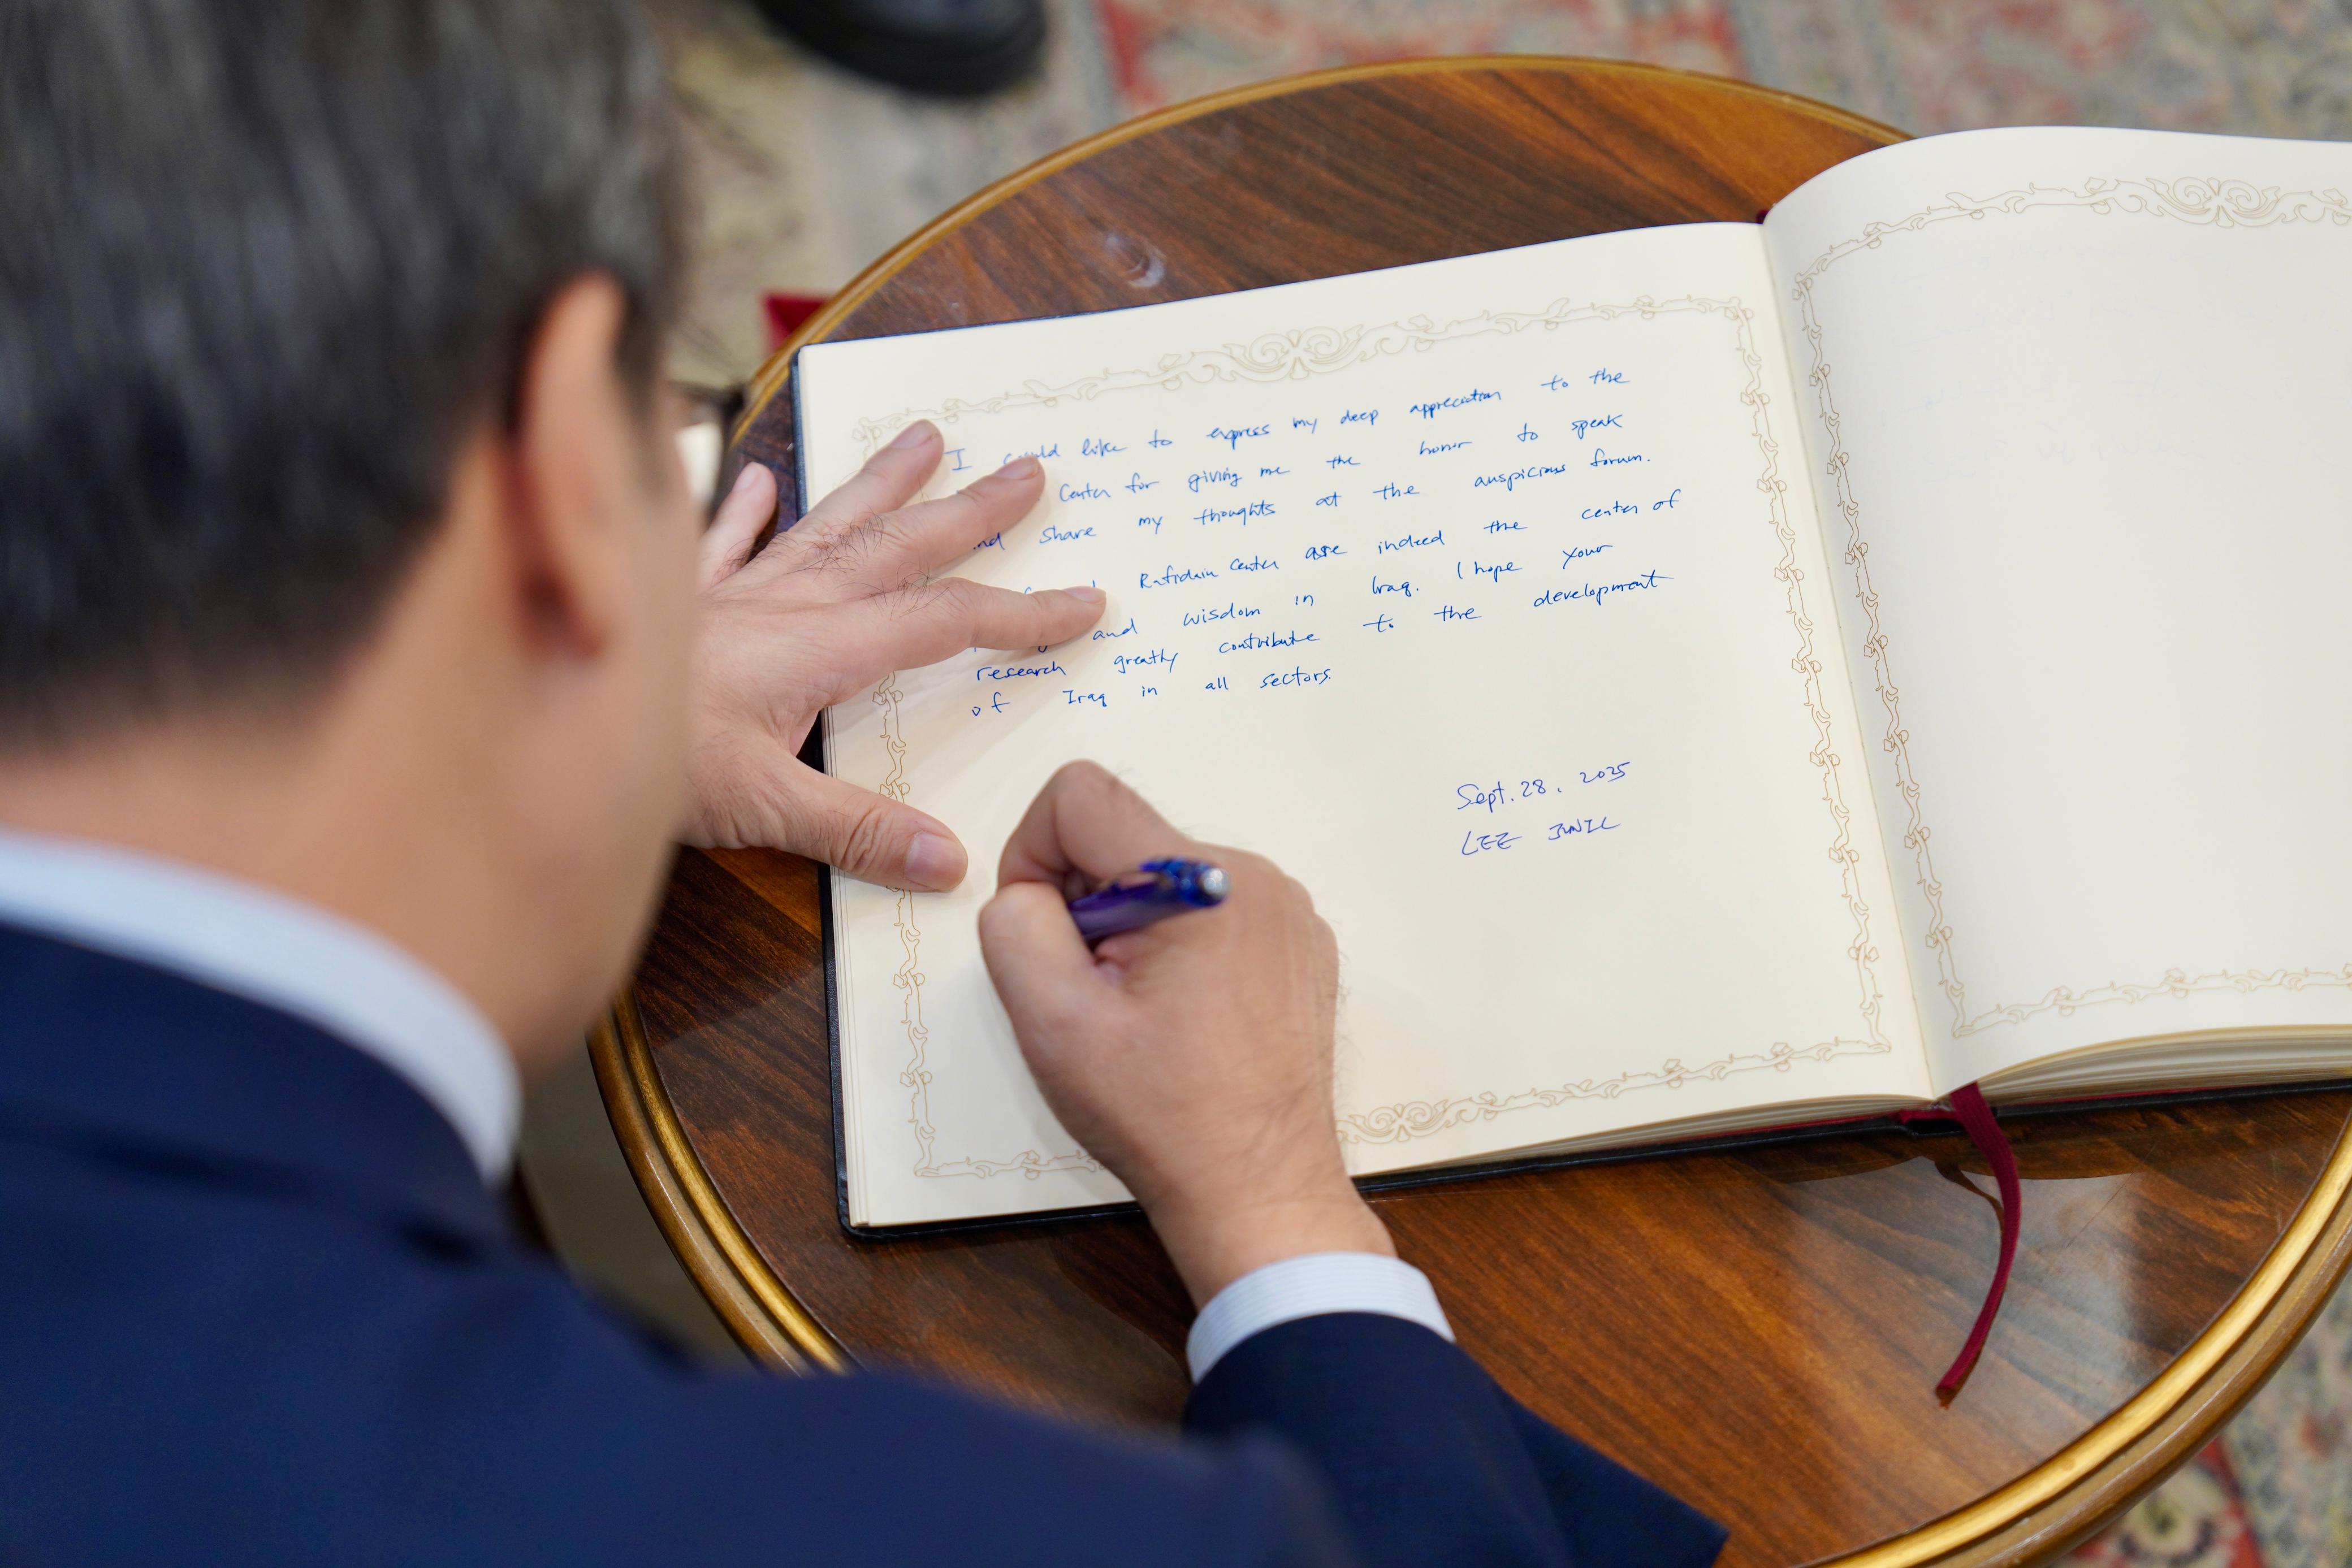 I would like to express my deep appreciation to the
Center for giving me the honor to speak
share my thoughts at the auspicious forum.
Rafidain Center are indeed the center of
and wisdom in Iraq. I hope your
research greatly contribute to the development
of Iraq in all sectors.
Sept. 28. 2025
LEE JUNIL